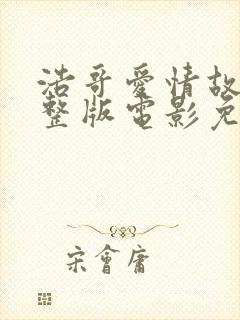 浩哥愛情故
整版電影免
宋會庸